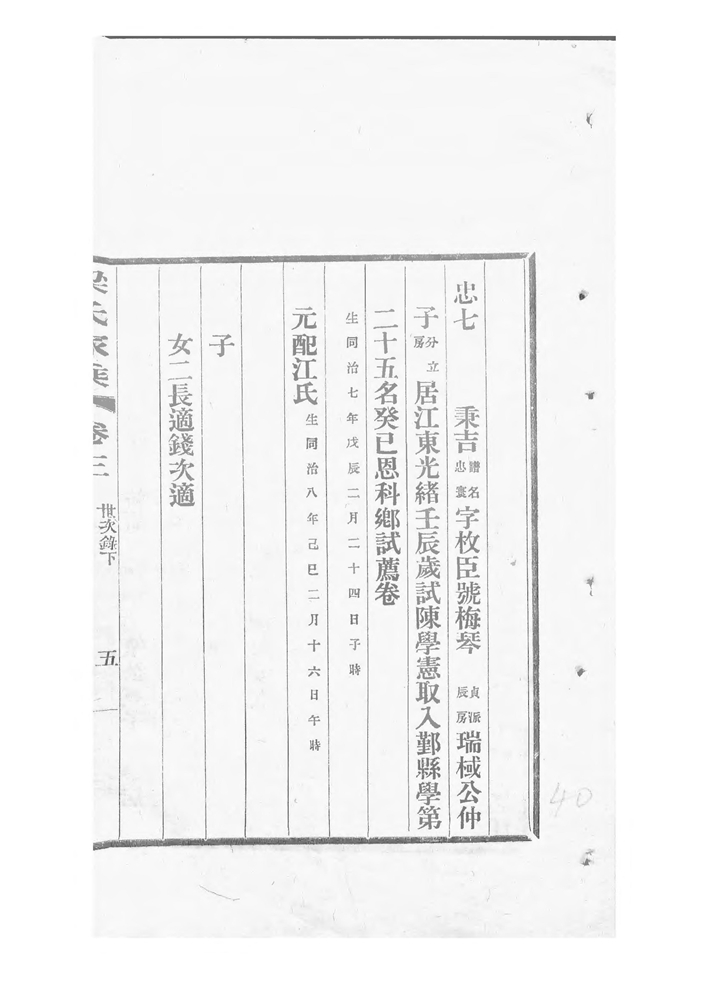 忠七　秉吉譜名忠寰字枚臣號梅琴貞派辰房瑞棫公仲
子分立房居江東光緒壬辰歲試陳學憲取入鄞縣學第
二十五名癸巳恩科鄉試薦卷
生同治七年戊辰二月二十四日子時
元配江氏生同治八年己巳二月十六日午時
子
女二長適錢次適
氏家集 卷三 世次錄下 五
40